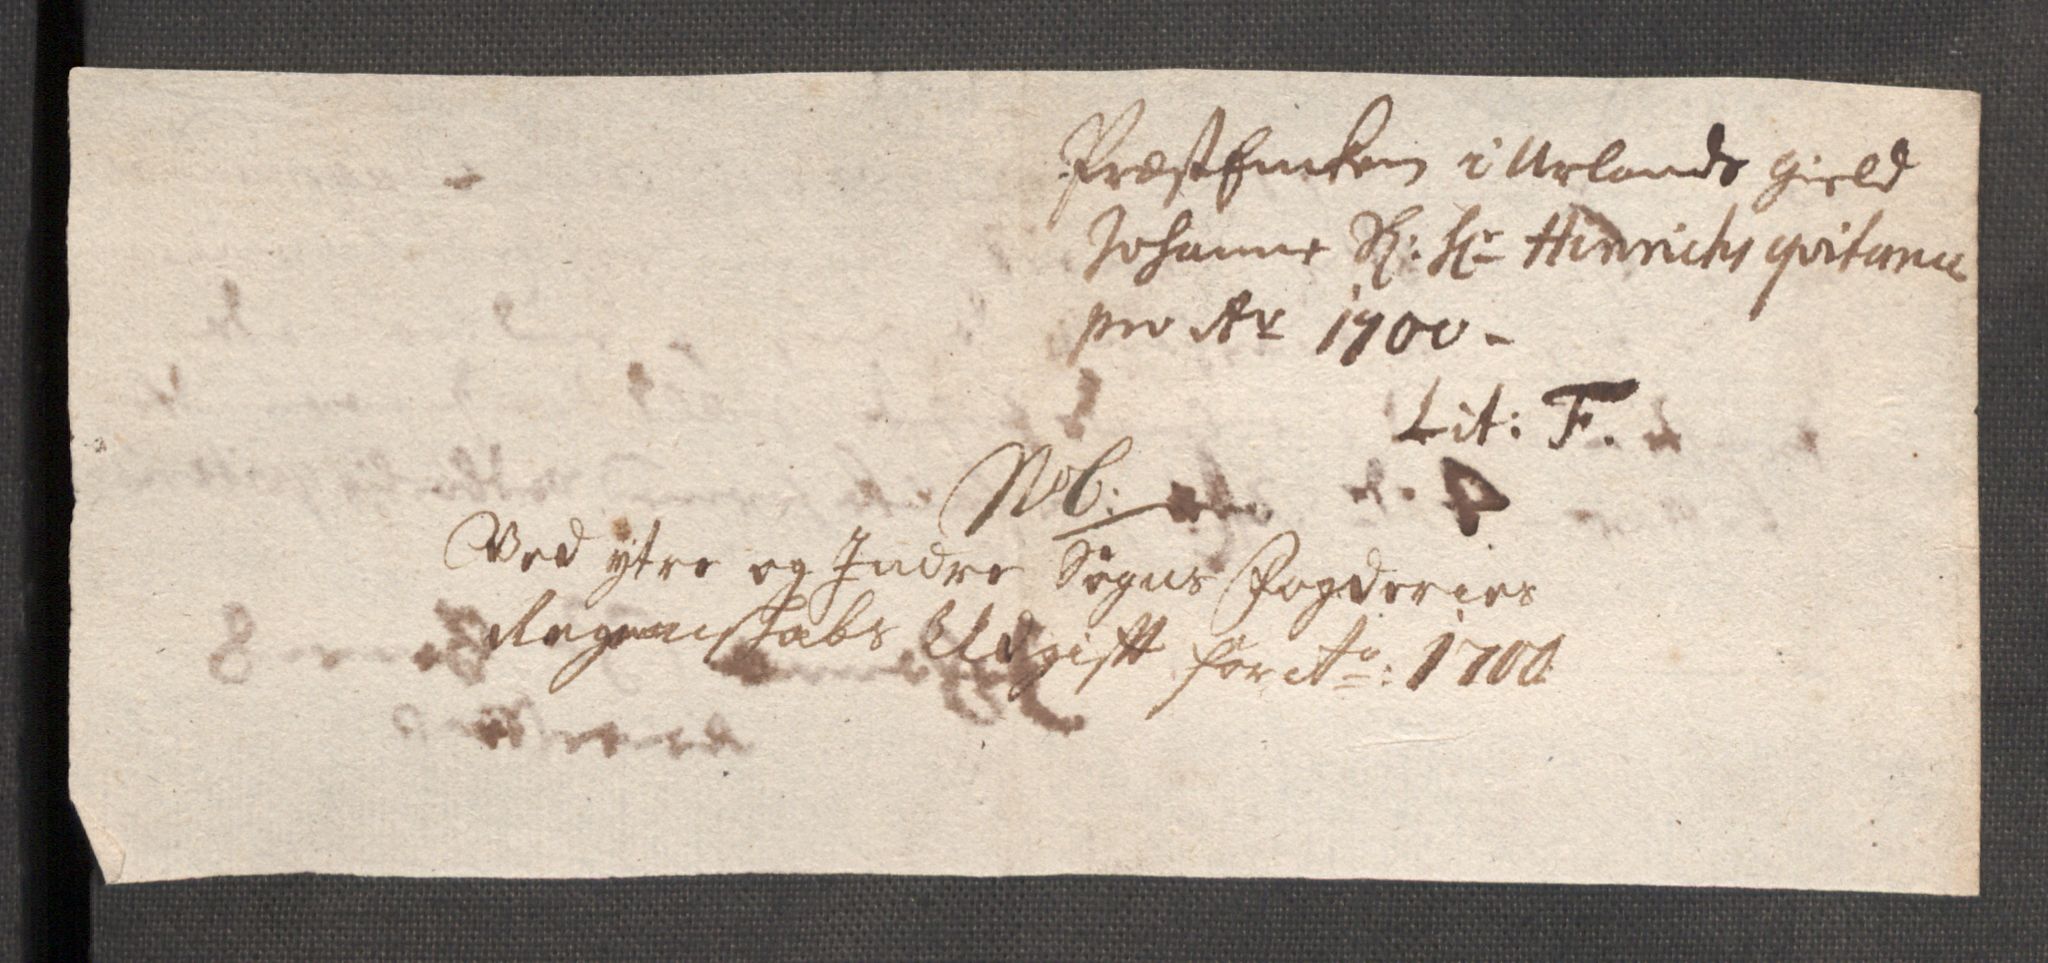 Præst Enken i Urlands gield
Johanne Sl: Hr Hinrichs qvitance
pro Ao 1700 -
Lit: F.
No 6:
Ved ytre og Indre Sogns Fogderies
Regenskabs Udgift for Ao: 1700